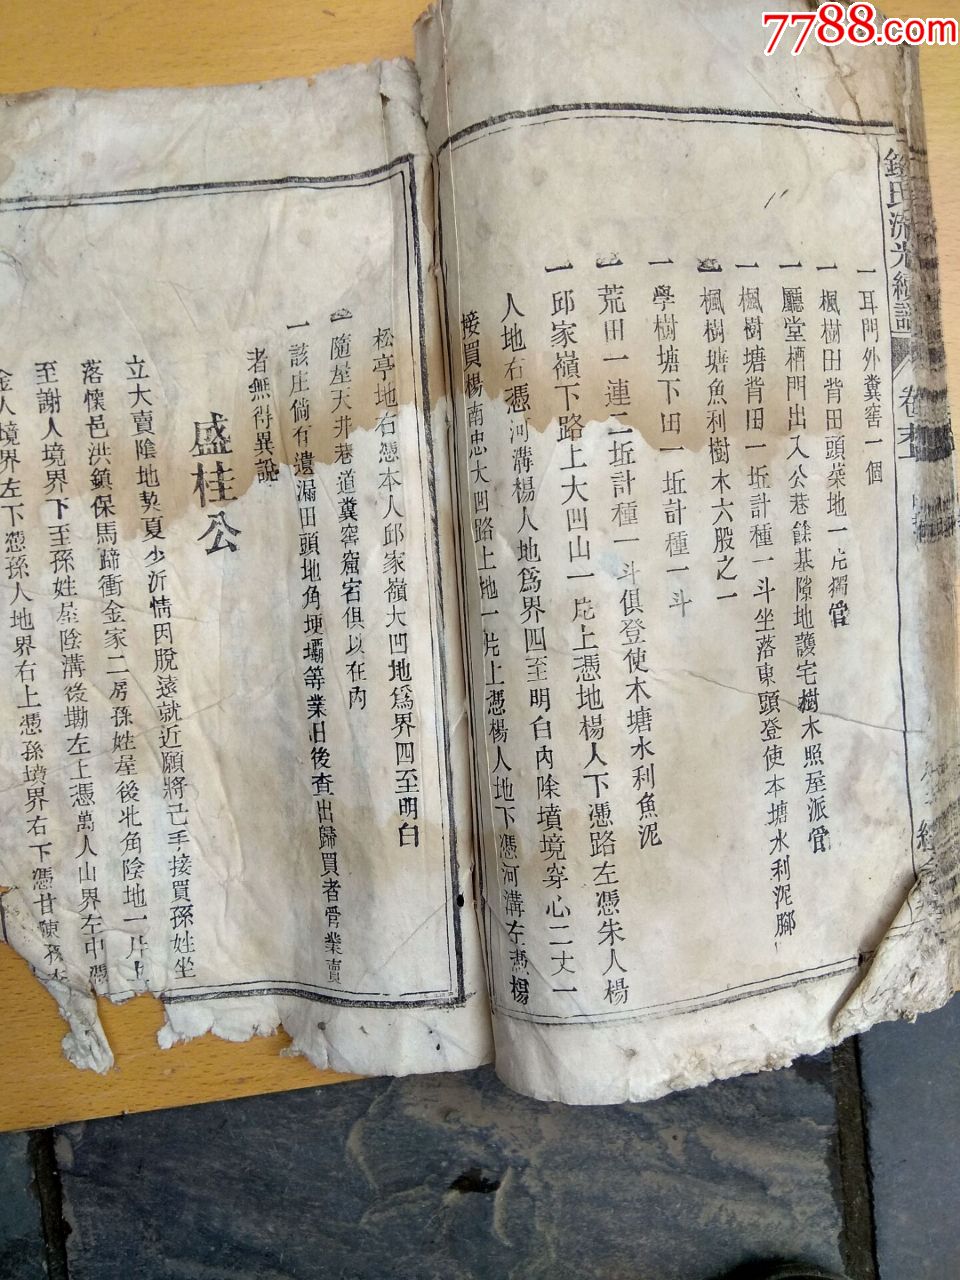 7788.com
氏流光續譜 卷末
一耳門外糞窖一個
一楓樹田背田頭菜地一片獨管
一廳堂槽門出入公巷餘基隙地護宅樹木照屋派管
一楓樹塘背田一坵計種一斗坐落東頭登使本塘水利泥腳
一楓樹塘魚利樹木六股之一
一學樹塘下田一坵計種一斗
一荒田一連二坵計種一斗俱登使木塘水利魚泥
一邱家嶺下路上大凹山一片上憑地楊人下憑路左憑朱人楊
人地右憑河溝楊人地為界四至明白內除墳境穿心二丈一
接買楊南忠大凹路上地一片上憑楊人地下憑河溝左憑楊
松亭地右憑本人邱家嶺大凹地為界四至明白
一隨屋天井巷道糞窖窟宕俱以在內
一該庄倘有遺漏田頭地角埂壩等業日後查出歸買者管業賣
者無得異說
盛桂公
立大賣陰地契夏少沂情因脫遠就近願將己手接買孫姓坐
落懷邑洪鎮保馬蹄衝金家二房孫姓屋後北角陰地一片上
至謝人境界下至孫姓屋陰溝後墈左上憑萬人山界左中憑
金人境界左下憑孫人地界右上憑孫墳界右下憑甘陳孫